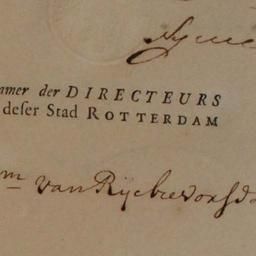 amer der DIRECTEURS
deser Stad ROTTERDAM
m van Rijckevorsel